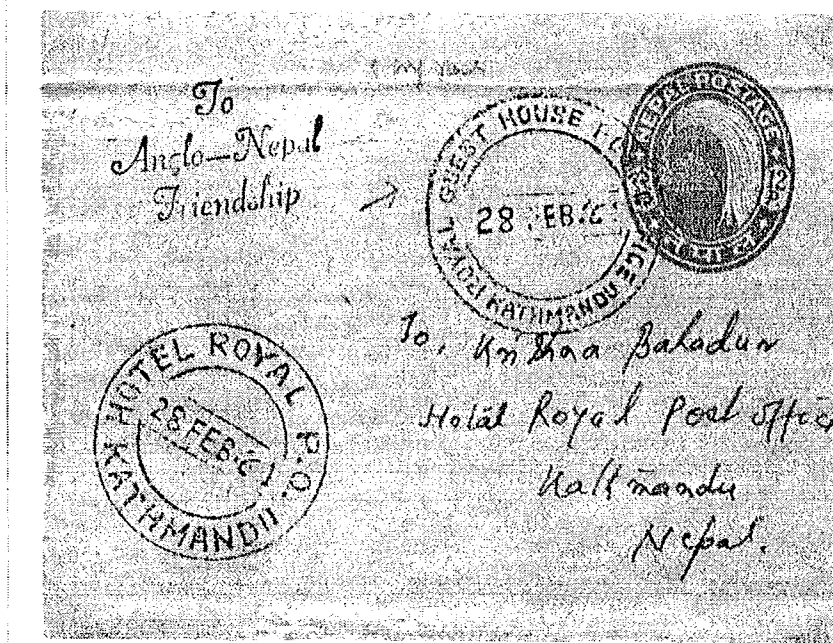 To
Anglo-Nepal
Friendship
ROYAL GUEST HOUSE
KATHMANDU
28 FEB 6
NEPAL POSTAGE
12
HOTEL ROYAL P.O.
KATHMANDU
28 FEB 61
To, Bahadur
Hotal Royal Post office
Kathmandu
Nepal.